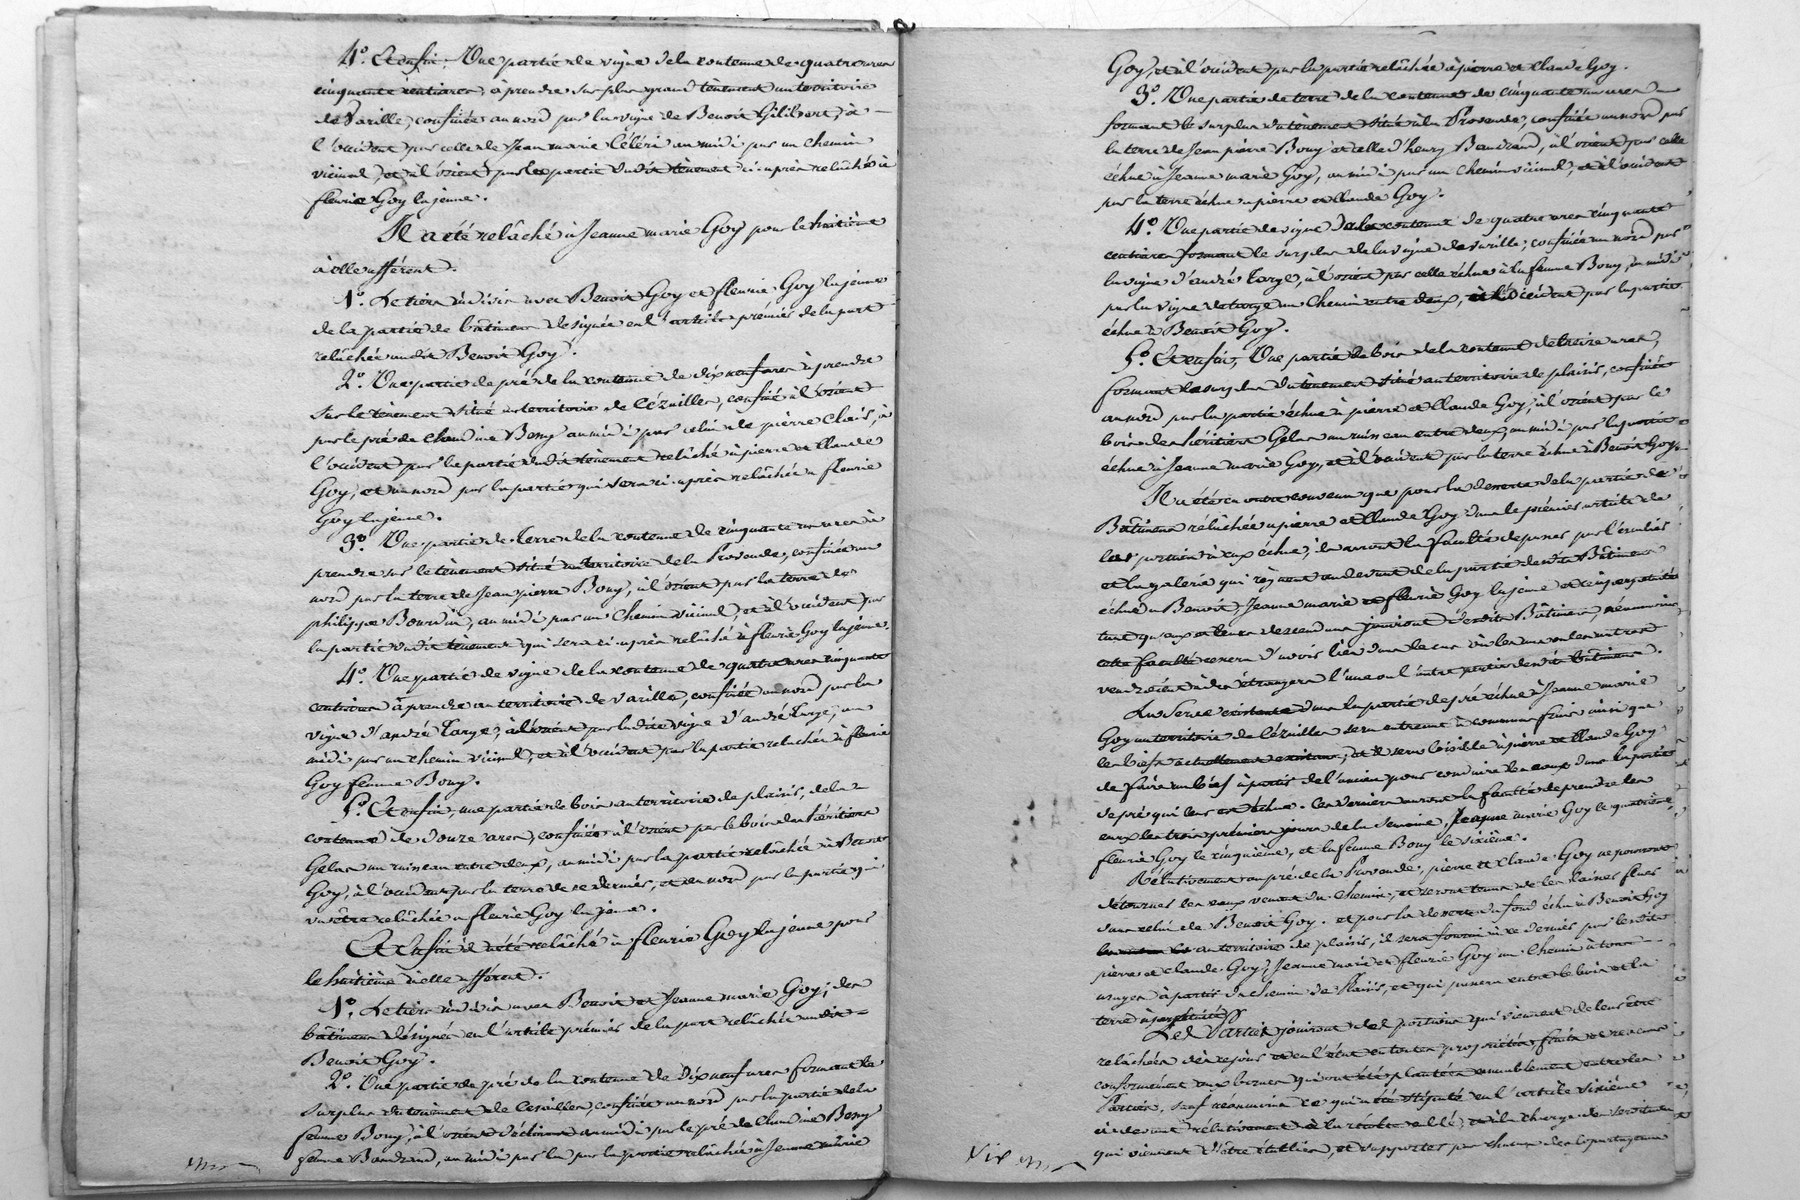 4° Et enfin, Une partie de vigne de la contenue de quatre ares
cinquante centiares, à prendre sur plus grand tènement au territoire
de Varille, confinée au nord par la vigne de Benoit Gilibert, à
l'occident par celle de Jean marie Céléri au midi par un chemin
vicinal, et à l'orient par la partie dudit tènement ci-après relâchée à
fleurie Goy la jeune.
Il a été relâché à Jeanne marie Goy pour le huitième
à elle afférent.
1° Le tiers indivis avec Benoit Goy et fleurie Goy la jeune
de la partie de bâtimens désignée en l'article premier de la part
relâchée audit Benoit Goy.
2° Une partie de pré de la contenue de dix neuf ares à prendre
sur le tènement situé au territoire de Cézailles, confiné à l'orient
par le pré de Claudine Bony au midi par celui de pierre Clair, à
l'occident par la partie dudit tènement relâché à pierre et Claude
Goy, et au nord par la partie qui sera ci-après relâchée à fleurie
Goy la jeune.
3° Une partie de Terre de la contenue de cinquante un ares à
prendre sur le tènement situé au territoire de la Provende, confinée au
nord par la terre de Jean pierre Bony, à l'orient par la terre de
philippe Bourdin, au midi par un Chemin vicinal, et à l'occident par
la partie dudit tènement qui sera ci-après relâché à fleurie Goy la jeune.
4° Une partie de vigne de la contenue de quatre ares cinquante
centiares à prendre au territoire de Varille, confinée au nord par la
vigne d'andré Large, à l'orient par ladite vigne d'andré Large, au
midi par un chemin vicinal, et à l'occident par la partie relâchée à fleurie
Goy femme Bony.
5° Et enfin, une partie de bois au territoire de plaisis, de la
contenue de douze ares, confinée à l'orient par le bois des héritiers
Gelas un ruisseau entre deux, au midi par la partie relâchée à Benoit
Goy, à l'occident par la terre de ce dernier, et au nord par la partie qui
va être relâchée à fleurie Goy la jeune.
Et enfin il a été relâché à fleurie Goy la jeune pour
le huitième à elle afférent.
1° Le tiers indivis avec Benoit et Jeanne marie Goy, des
bâtimens désignés en l'article premier de la part relâchée audit
Benoit Goy.
2° Une partie de pré de la contenue de Dix neuf ares formant le
surplus du tènement de Cézailles, confinée au nord par la partie de la
femme Bony, à l'orient au midi par le pré de Claudine Bony
femme Baudrand, au midi par la par la partie relâchée à Jeanne marie
Goy, et à l'occident par la partie relâchée à pierre et Claude Goy.
3° Une partie de terre de la contenue de cinquante un ares
formant le surplus du tènement situé à la Provende, confinée au nord par
la terre de Jean pierre Bony et celle d'henry Baudrand, à l'orient par celle
échue à Jeanne marie Goy, au midi par un chemin vicinal, et à l'occident
par la terre échue à pierre et Claude Goy.
4° Une partie de vigne de la contenue de quatre ares cinquante
centiares formant le surplus de la vigne de varille, confinée au nord par
la vigne d'andré Large, à l'orient par celle échue à la femme Bony, au midi
par la vigne de Large un Chemin entre deux, et à l'occident par la partie
échue à Benoit Goy.
5° Et enfin, Une partie de bois de la contenue de treize ares,
formant le surplus du tènement situé au territoire de plaisis, confinée
au nord par la partie échue à pierre et Claude Goy, à l'orient par le
bois des héritiers Gelas un ruisseau entre deux, au midi par la partie
échue à Jeanne marie Goy, et à l'occident par la terre échue à Benoit Goy.
Il a été en outre convenu que pour la desserte de la partie de
Bâtimens relâchée à pierre et Claude Goy dans le premier article de
la portion à eux échue, ils auront la faculté de passer par l'escalier
et la galerie qui règnent au devant de la partie desdits Bâtimens
échue à Benoit, Jeanne marie et fleurie Goy la jeune et ce pendant
tant qu'eux et leurs descendans jouiront desdits Bâtimens, néanmoins
cette faculté cessera d'avoir lieu dans le cas où les uns ou les autres
vendroient à des étrangers l'une ou l'autre partie desdits bâtimens.
La Serve existante dans la partie de pré échue à Jeanne marie
Goy au territoire de Cézailles sera entretenue à communs frais ainsi que
le bief actuellement existant, et il sera loisible à pierre et Claude Goy
de faire un bief à partir de l'ancien pour conduire les eaux dans la partie
de pré qui leur est échue. Ces derniers auront la faculté de prendre les
eaux les trois premiers jours de la semaine, Jeanne marie Goy le quatrième,
fleurie Goy le cinquième, et la femme Bony le sixième.
Relativement au pré de la Provende, pierre et Claude Goy ne pourront
détourner les eaux venant du Chemin, et seront tenus de les laisser fluer
dans celui de Benoit Goy. et pour la desserte du fond échu à Benoit Goy
au territoire de plaisis, il sera fourni à ce dernier par lesdits
pierre et Claude Goy, Jeanne marie et fleurie Goy un Chemin à tous
usages à partir du chemin de Plaisis, et qui passera entre le bois et la
terre à perpétuité.
Les Parties jouiront des portions qui viennent de leur être
relâchées dès ce jour et en l'état en toutes propriétés, fruits et revenus
conformément aux bornes qui ont été plantées amiablement entre les
Parties, sauf néanmoins ce qui a été stipulé en l'article sixième
ci devant relativement à la récolte, et à la charge des servitudes
qui viennent d'être établies, et supporter par chacun des copartageans